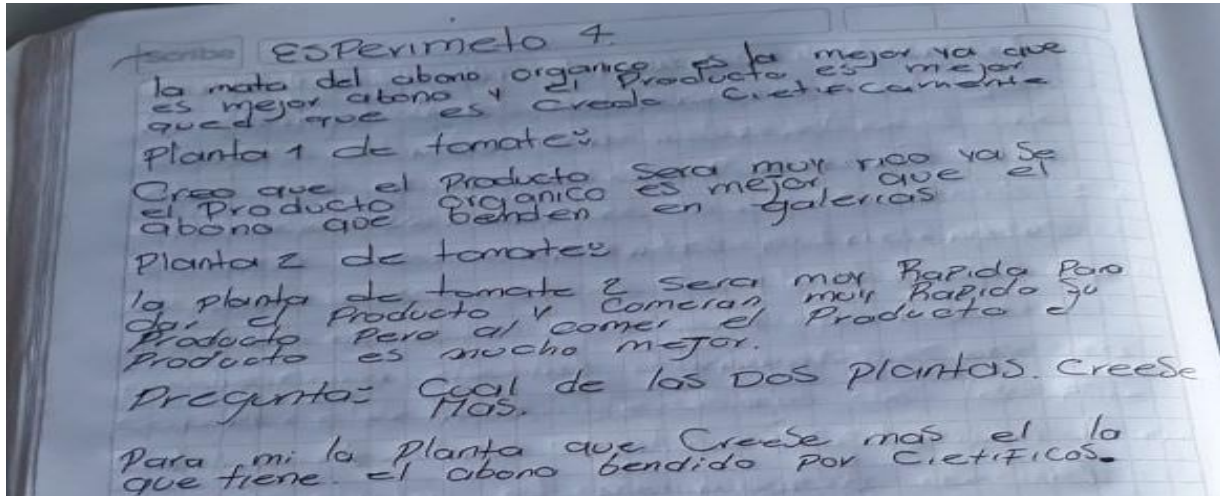 Escriba
ESPerimeto 4.
la mata del abono organico es la mejor ya que
es mejor abono y el Producto es mejor
que es Creado Cietificamente
Planta 1 de tomates
Creo que el Producto Sera muy rico ya Se
el Producto organico es mejor que el
abono que benden en galerias
Planta 2 de tomates
la planta de tomate 2 Sera muy Rapida Para
dar el Producto y Comeran muy Rapido Su
Producto Pero al comer el Producto
Producto es mucho meJor.
Pregunta= Cual de las DOS Plantas. CreeSe
Mas.
Para mi la Planta que CreeSe mas el la
que tiene el abono bendido por CietiFicos.